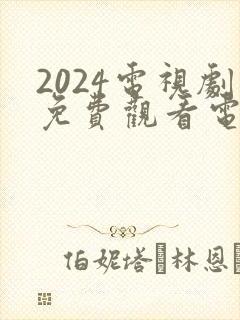 2024電視劇
免費觀看電
伯妮塔·林恩